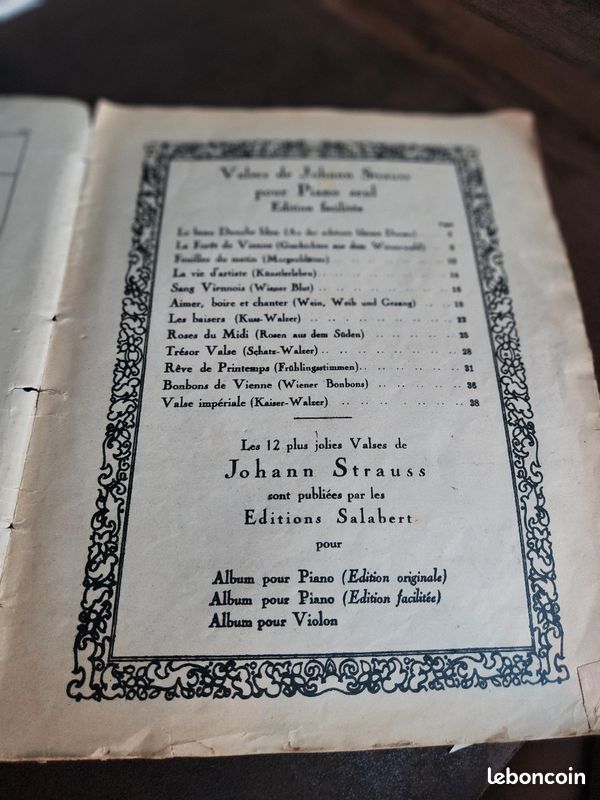 Valses de Johann Strauss
pour Piano seul
Edition facilitée
Pages
Le beau Danube bleu (An der schönen blauen Donau)
La Forêt de Vienne (Geschichten aus dem Wienerwald)
Feuilles du matin (Morgenblätter) 10
La vie d'artiste (Künstlerleben)
Sang Viennois (Wiener Blut)
Aimer, boire et chanter (Wein, Weib und Gesang) 18
Les baisers (Kuss-Walzer) 22
Roses du Midi (Rosen aus dem Süden) 25
Trésor Valse (Schatz-Walzer) 28
Rêve de Printemps (Frühlingsstimmen) 31
Bonbons de Vienne (Wiener Bonbons) 36
Valse impériale (Kaiser-Walzer) 38
Les 12 plus jolies Valses de
Johann Strauss
sont publiées par les
Editions Salabert
pour
Album pour Piano (Edition originale)
Album pour Piano (Edition facilitée)
Album pour Violon
leboncoin